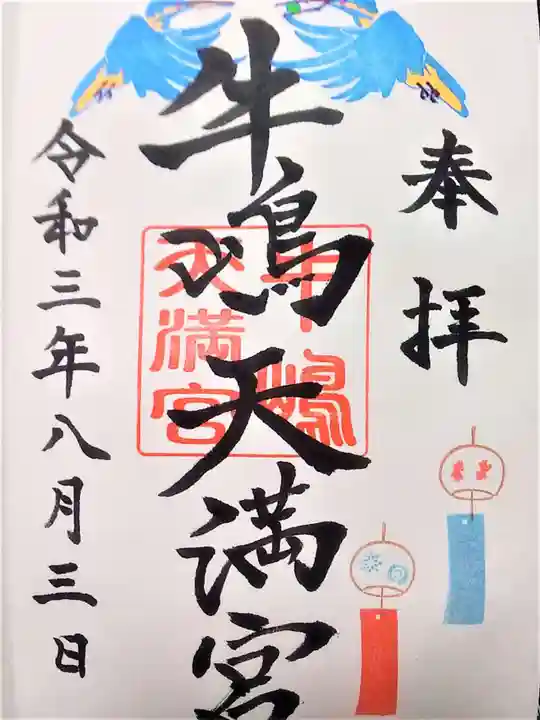 奉拝
牛嶋天満宮
牛嶋
天満宮
令和三年八月三日